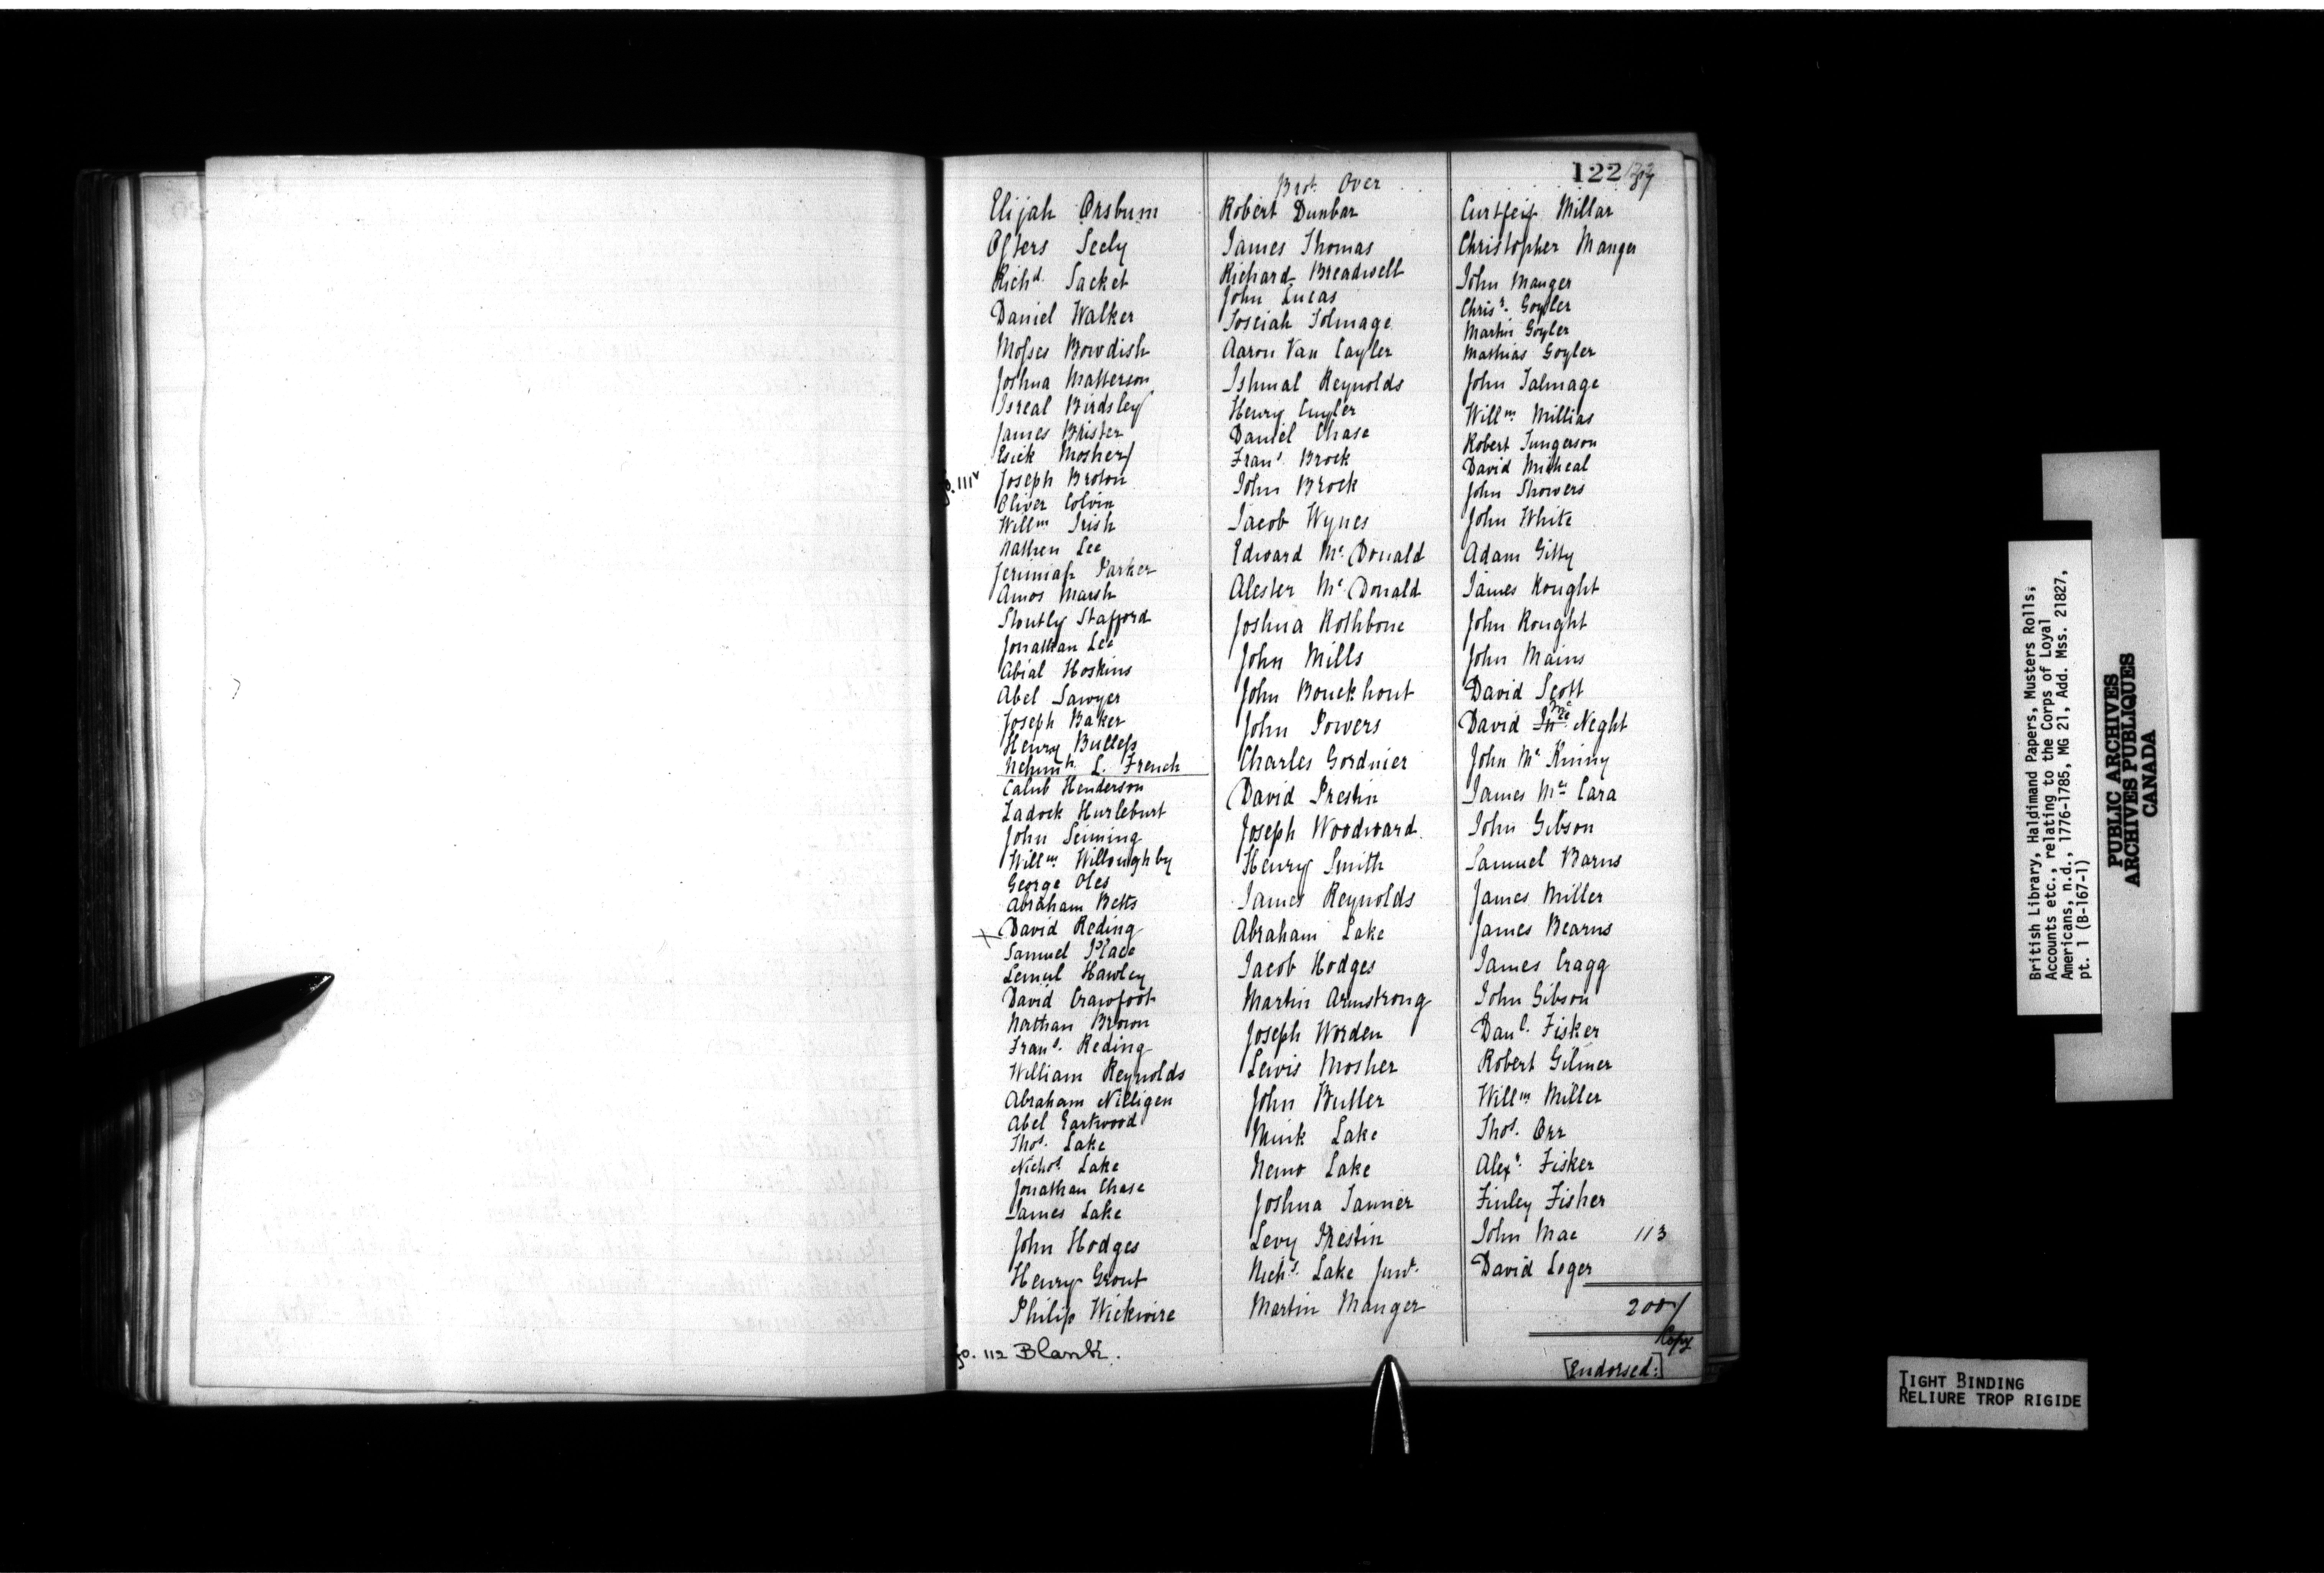 122
Brot. Over
Elijah Orsbum
Osters Seely
Richd. Sacket
Daniel Walker
Mosses Bowdish
Joshua Matterson
Isreal Birdsley
James Brister
Esick Mosher
fo. 111v
Joseph Broton
Oliver Colvin
Willm Irish
Nathen Lee
Jerimiah Parker
Amos Marsh
Stoutly Stafford
Jonathan Lee
Abial Hoskins
Abel Sawyer
Joseph Baker
Henry Bulless
Nehimh. L. French
Calub Henderson
Zadock Hurleburt
John Seiming
Willm. Willoughby
George Oles
Abraham Betts
X David Reding
Samuel Place
Lemul Hawley
David Crawfoot
Nathan Brown
Frans. Reding
William Reynolds
Abraham Nilligen
Abel Eartwood
Thos. Lake
Nichos. Lake
Jonathan Chase
James Lake
John Hodges
Henry Grout
Philip Wickwire
fo. 112 Blank.
Robert Dunbar
James Thomas
Richard Breadwell
John Lucas
Joseiah Tolmage
Aaron Van Cayler
Ishmal Reynolds
Henry Cuyler
Daniel Chase
Frans. Brock
John Brock
Jacob Wynes
Edward Mc. Donald
Alester Mc. Donald
Joshua Rothbone
John Mills
John Bouckhout
John Powers
Charles Gordnier
David Prestin
Joseph Woodward
Henry Smith
James Reynolds
Abraham Lake
Jacob Hodges
Martin Armstrong
Joseph Worden
Lewis Mosher
John Butler
Muik Lake
Nemo Lake
Joshua Tanner
Levy Prestin
Nichs. Lake Junr.
Martin Manger
Millar
Christopher Manger
John Manger
Chrisr. Goyler
Martin Goyler
Mathias Goyler
John Talmage
Willm. Millias
Robert Jungerson
David Micheal
John Showers
John White
Adam Gitty
James Rought
John Rought
John Mains
David Scott
David Mc Neght
John Mc Kinny
James Mc Cara
John Gibson
Samuel Barns
James Miller
James Bearns
James Cragg
John Gibson
Danl. Fisker
Robert Gilmer
Willm Miller
Thos. Orr
Alexr. Fisker
Finley Fisher
John Mac 113
David Loger
200/
Copy
[Endorsed:]
British Library, Haldimand Papers, Musters Rolls,
Accounts etc., relating to the Corps of Loyal
Americans, n.d., 1776-1785, MG 21, Add. Mss. 21827,
pt. 1 (B-167-1)
PUBLIC ARCHIVES
ARCHIVES PUBLIQUES
CANADA
TIGHT BINDING
RELIURE TROP RIGIDE